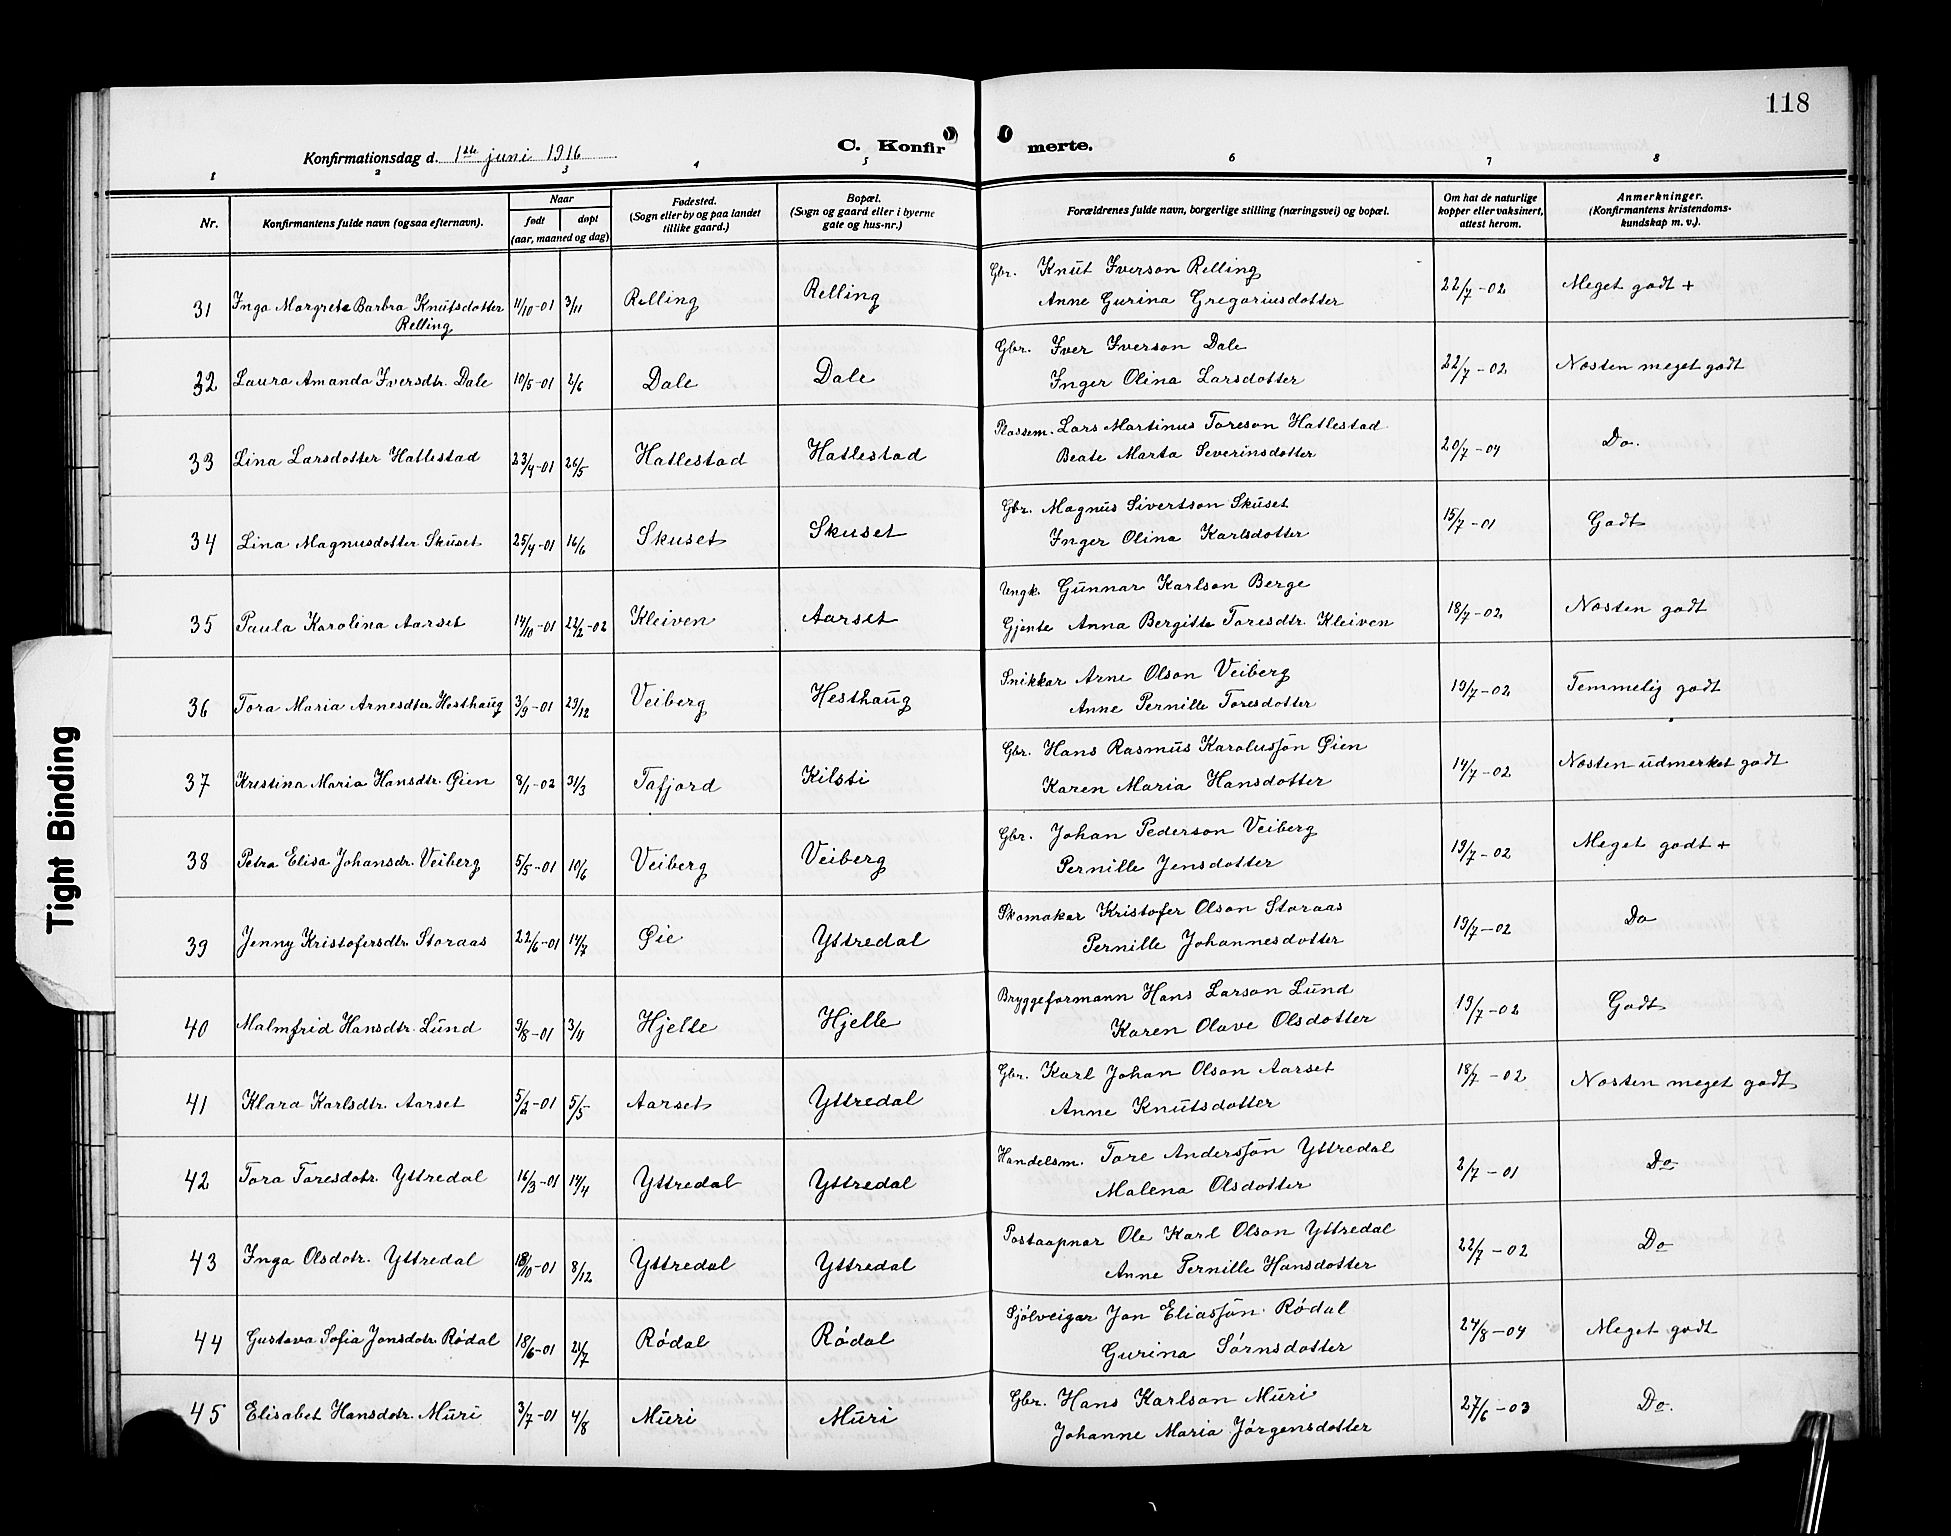 118
Konfirmationsdag d. 1ste juni 1916
C. Konfirmerte.
1 2 3 4 5 6 7 8
Nr.
Konfirmantens fulde navn (ogsaa efternavn).
Naar
født døpt
(aar, maaned og dag)
Fødested.
(Sogn eller by og paa landet
tillike gaard.)
Bopæl.
(Sogn og gaard eller i byerne
gate og hus-nr.)
Forældrenes fulde navn, borgerlige stilling (næringsvei) og bopæl.
Om hat de naturlige
kopper eller vaksinert,
attest herom.
Anmerkninger.
(Konfirmantens kristendoms-
kundskap m. v.).
Gbr. Knut Iverson Relling
31 Inga Margrete Barbra Knutsdotter 11/10-01 3/11 Relling Relling Anne Gurina Gregoriusdotter 22/7-02 Meget godt +
Relling
Gbr. Iver Iverson Dale
32 Laura Amanda Iversdtr. Dale 10/5-01 2/6 Dale Dale Inger Olina Larsdotter 22/7-02 Næsten meget godt
Plassem. Lars Martinus Toreson Hatlestad
33 Lina Larsdotter Hatlestad 23/4-01 26/5 Hatlestad Hatlestad Beate Marta Severinsdotter 20/7-04 Do.
Gbr. Magnus Sivertson Skuset
34 Lina Magnusdotter Skuset 25/4-01 16/6 Skuset Skuset Inger Olina Karlsdotter 15/7-01 Godt
Ungk. Gunnar Karlson Berge
35 Paula Karolina Aarset 14/10-01 22/2-02 Kleiven Aarset Gjente Anna Bergitte Toresdtr. Kleiven 18/7-02 Næsten godt
Snikkar Arne Olson Veiberg
36 Tora Maria Arnesdtr Hesthaug 3/9-01 29/12 Veiberg Hesthaug Anne Pernille Toresdotter 19/7-02 Temmelig godt
Gbr. Hans Rasmus Karolusson Øien
37 Kristina Maria Hansdtr. Øien 8/1-02 31/3 Tafjord Kilsti Karen Maria Hansdotter 14/7-02 Næsten udmerket godt
Gbr. Johan Pederson Veiberg
38 Petra Elisa Johansdr. Veiberg 5/5-01 10/6 Veiberg Veiberg Pernille Jensdotter 19/7-02 Meget godt +
Skomakar Kristofer Olson Storaas
39 Jenny Kristofersdtr. Storaas 22/6-01 14/7 Øie Yttredal Pernille Johannesdotter 19/7-02 Do
Bryggeformann Hans Larson Lund
40 Malmfrid Hansdtr. Lund 9/8-01 3/4 Hjelle Hjelle Karen Olave Olsdotter 19/7-02 Godt
Gbr. Karl Johan Olson Aarset
41 Klara Karlsdtr. Aarset 5/2-01 5/5 Aarset Yttredal Anne Knutsdotter 18/7-02 Næsten meget godt
Handelsm. Tore Andersson Yttredal
42 Tora Toresdotr. Yttredal 16/3-01 14/4 Yttredal Yttredal Malena Olsdotter 2/7-01 Do
Postaapnar Ole Karl Olson Yttredal
43 Inga Olsdotr. Yttredal 18/10-01 8/12 Yttredal Yttredal Anne Pernille Hansdotter 22/7-02 Do
Sjølveigar Jon Eliasson Rødal
44 Gustava Sofia Jonsdotr. Rødal 18/6-01 21/7 Rødal Rødal Gurina Sørnsdotter 24/8-04 Meget godt
Gbr. Hans Karlson Muri
45 Elisabet Hansdotr. Muri 3/7-01 4/8 Muri Muri Johanne Maria Jørgensdotter 27/6-03 Do.
Tight Binding